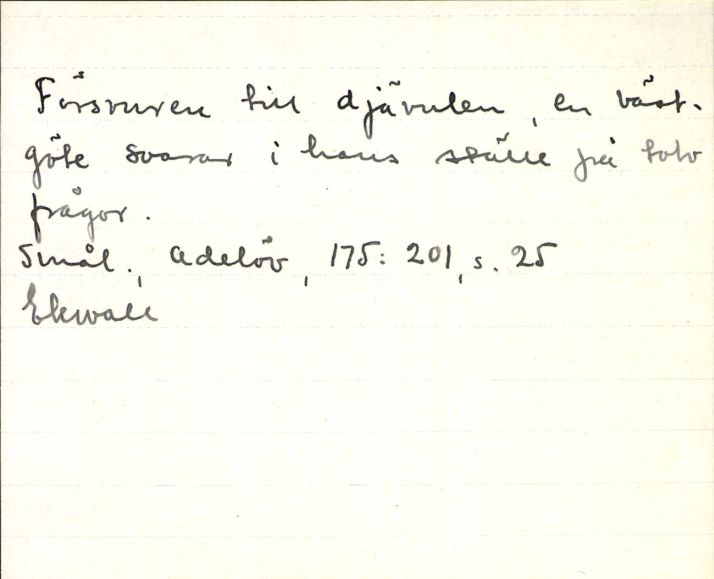 Försvuren till djävulen, en väst-
göte svarar i hans ställe på tolv
frågor.
Smål., Adelöv, 175: 201, s. 25
Ekwall